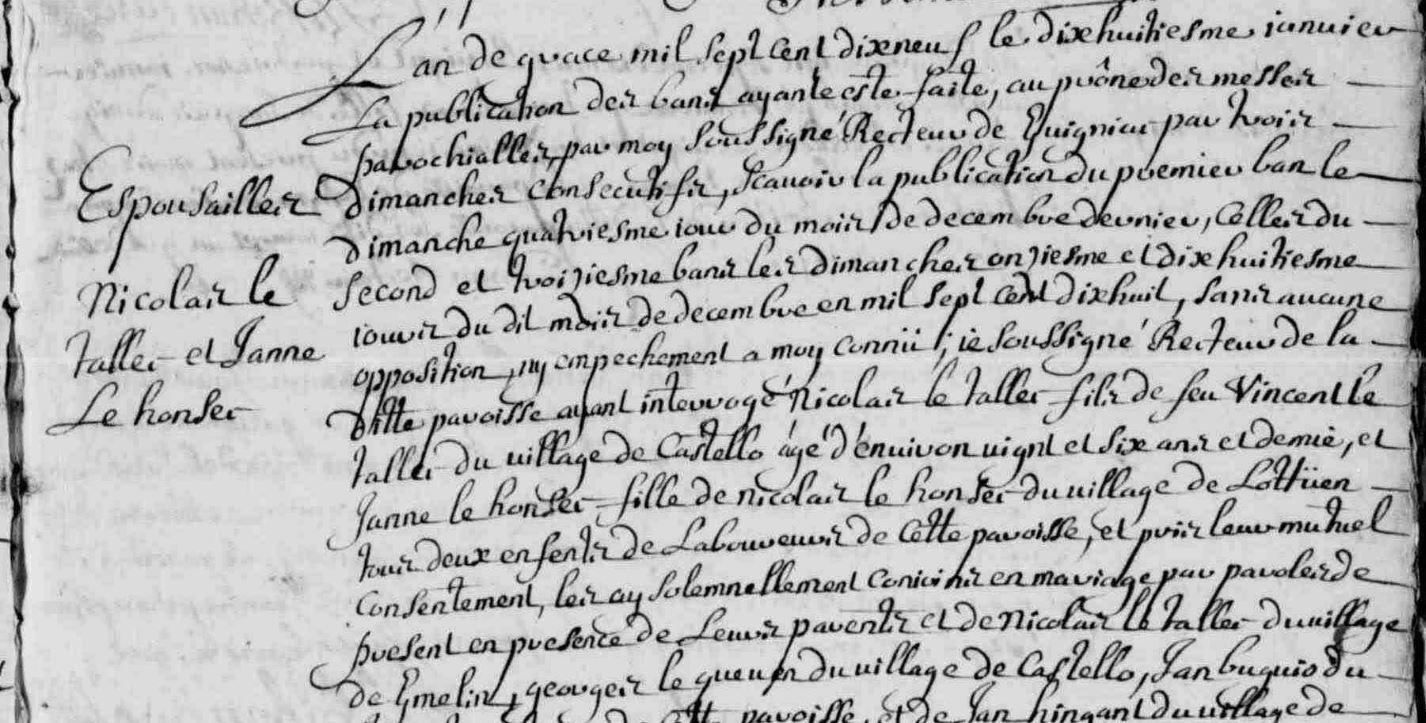 L'an de grace mil sept cent dixneuf le dixhuitiesme ianvier
La publication des bans ayante esté faite, au prône des messes
parochialles, par moy soussigné Recteur de Guignias par trois
Espousailles
dimanches consecutifs, scavoir la publication du premier ban le
dimanche quatriesme iour du mois de decembre dernier, Celles du
Nicolas le
second et troiziesme bans les dimanches onziesme et dixhuitiesme
iours du dit mois de decembre en mil sept cent dixhuit, sans aucune
tallec et Janne
opposition, ny empechement a moy connü; ie soussigné Recteur de la
Le honsec
ditte paroisse ayant interrogé Nicolas le tallec fils de feu Vincent le
tallec du village de Castello âgé d'environ vignt et six ans et demie, et
Janne le honsec fille de nicolas le honsec du village de Lottüen
tous deux enfents de Laboureurs de Cette paroisse, et pris leur mutuel
Consentement, les ay solemnellement Conioins en mariage par paroles de
present en presence de Leurs parents et de Nicolas le tallec du village
de Emelin, georges le queven du village de Castello, Jan buquio du
Cette paroisse, et de Jan hingant du village de